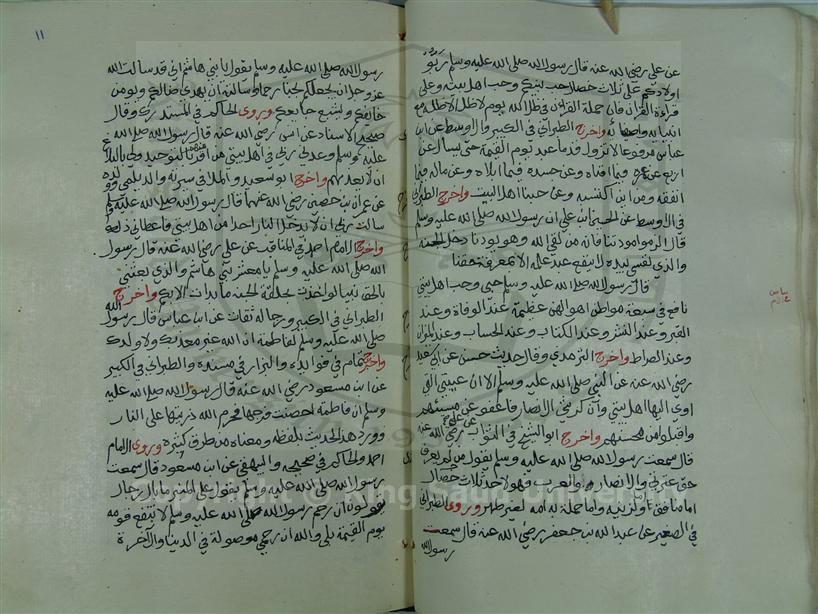 عن علي رضي الله عنه قال رسول الله صلى الله عليه وسلم ادبوا
اولادكم على ثلاث خصال حب نبيكم وحب اهل بيته وعلى
قراءة القرآن فان حملة القرآن في ظل الله يوم لا ظل الا ظله مع
انبيائه واصفيائه واخرج الطبراني في الكبير والاوسط عن ابن
عباس مرفوعا لا تزول قدما عبد يوم القيمة حتى يسأل عن
اربع عن عمره فيما افناه وعن جسده فيما ابلاه وعن ماله فيما
انفقه ومن اين اكتسبه وعن حبنا اهل البيت واخرج الطبراني
في الاوسط عن الحسين ابن علي ان رسول الله صلى الله عليه وسلم
قال الزموا مودتنا فان من لقي الله وهو يودنا دخل الجنة
والذي نفسي بيده لا ينفع عبد عمله الا بمعرفة حقنا
قال رسول الله صلى الله عليه وسلم حبي وحب اهل بيتي
نافع في سبعة مواطن اهوالهن عظيمة عند الوفاة وعند
القبر وعند النشر وعند الكتاب وعند الحساب وعند الميزان
وعند الصراط واخرج الترمذي وقال حديث حسن عن ابي سعيد
رضي الله عنه عن النبي صلى الله عليه وسلم الا ان عيبتي التي
اوي اليها اهل بيتي وان كرشي الانصار فاعفو عن مسيئهم
واقبلوا من محسنهم واخرج ابو الشيخ في الثواب عن علي رضي الله عنه
قال سمعت رسول الله صلى الله عليه وسلم يقول من لم يعرف
حق عترتي والانصار والعرب فهو لاحد ثلاث خصال
اما منافق واما لزنية واما حملة به امه لغير طهر وروى الطبراني
في الصغير عن عبد الله بن جعفر رضي الله عنه قال سمعت
رسول الله
١١
رسول الله صلى الله عليه وسلم يقول يا بني هاشم اني قد سالت الله
عز وجل ان يجعلكم نجبا رحما وسالته ان يهدي ضالكم ويومن
خائفكم ويشبع جائعكم وروى الحاكم في المستدرك وقال
صحيح الاسناد عن انس رضي الله عنه قال رسول الله صلى الله
عليه وسلم وعدني ربي في اهل بيتي من اقر منهم بالتوحيد ولي بالبلاغ
ان لا يعذبهم واخرج ابو سعيد والملا في سيرته والديلمي وولده
عن عمران بن حصين رضي الله عنهما قال رسول الله صلى الله عليه وسلم
سالت ربي ان لا يدخل النار احدا من اهل بيتي فاعطاني ذلك
واخرج الامام احمد في المناقب عن علي رضي الله عنه قال رسول
الله صلى الله عليه وسلم يا معشر بني هاشم والذي بعثني
بالحق نبيا لو اخذت بحلقة الجنة ما بدات الا بكم واخرج
الطبراني في الكبير ورجاله ثقات عن ابن عباس قال رسول الله
صلى الله عليه وسلم لفاطمة ان الله غير معذبك ولا ولدك
واخرج تمام في فوائده والبزار في مسنده والطبراني في الكبير
عن ابن مسعود رضي الله عنه قال رسول الله صلى الله عليه
وسلم ان فاطمة احصنت فرجها فحرم الله ذريتها على النار
وورد هذا الحديث بلفظه ومعناه من طرق كثيرة وروى الامام
احمد والحاكم في صحيحه والبيهقي عن ابن مسعود قال سمعت
رسول الله صلى الله عليه وسلم يقول على المنبر ما بال رجال
يقولون ان رحم رسول الله صلى الله عليه وسلم لا تنفع قومه
يوم القيمة بلى والله ان رحمي موصولة في الدنيا والآخرة
Copyright © King Saud University